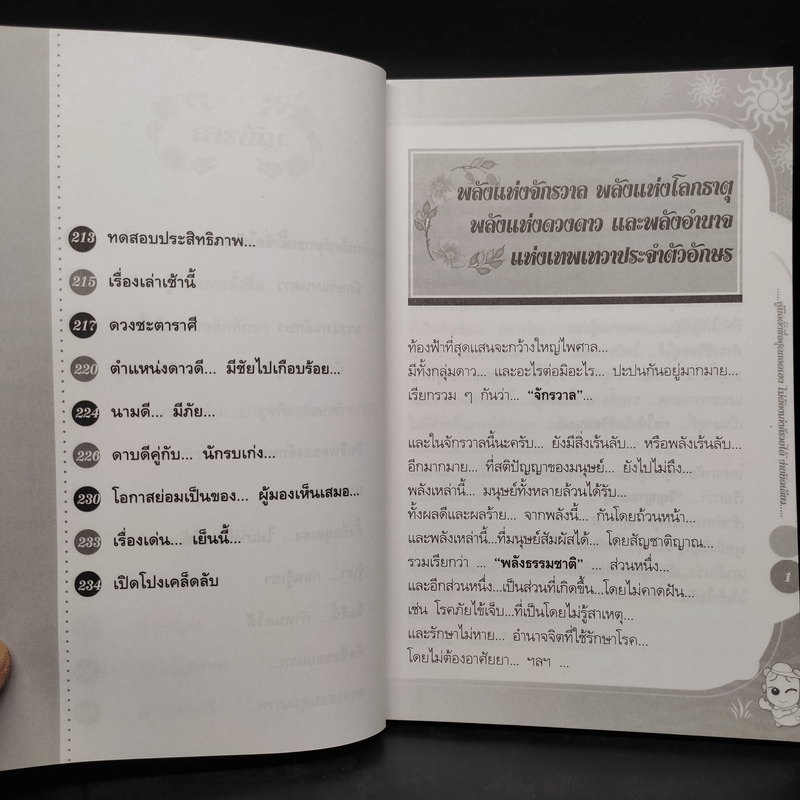 213 ทดสอบประสิทธิภาพ...
215 เรื่องเล่าเช้านี้
217 ดวงชะตาราศี
220 ตำแหน่งดาวดี... มีชัยไปเกือบร้อย...
224 นามดี... มีภัย...
226 ดาบดีคู่กับ... นักรบเก่ง...
230 โอกาสย่อมเป็นของ... ผู้มองเห็นเสมอ...
233 เรื่องเด่น... เย็นนี้...
234 เปิดโปงเคล็ดลับ
พลังแห่งจักรวาล พลังแห่งโลกธาตุ
พลังแห่งดวงดาว และพลังอำนาจ
แห่งเทพเทวาประจำตัวอักษร
ท้องฟ้าที่สุดแสนจะกว้างใหญ่ไพศาล...
มีทั้งกลุ่มดาว... และอะไรต่อมิอะไร... ปะปนกันอยู่มากมาย...
เรียกรวม ๆ กันว่า... “จักรวาล”...
และในจักรวาลนี้นะครับ... ยังมีสิ่งเร้นลับ... หรือพลังเร้นลับ...
อีกมากมาย... ที่สติปัญญาของมนุษย์... ยังไปไม่ถึง...
พลังเหล่านี้... มนุษย์ทั้งหลายล้วนได้รับ...
ทั้งผลดีและผลร้าย... จากพลังนี้... กันโดยถ้วนหน้า...
และพลังเหล่านี้...ที่มนุษย์สัมผัสได้... โดยสัญชาติญาณ...
รวมเรียกว่า ... “พลังธรรมชาติ” ... ส่วนหนึ่ง...
และอีกส่วนหนึ่ง...เป็นส่วนที่เกิดขึ้น...โดยไม่คาดฝัน...
เช่น โรคภัยไข้เจ็บ...ที่เป็นโดยไม่รู้สาเหตุ...
และรักษาไม่หาย... อำนาจจิตที่ใช้รักษาโรค...
โดยไม่ต้องอาศัยยา... ฯลฯ ...
1